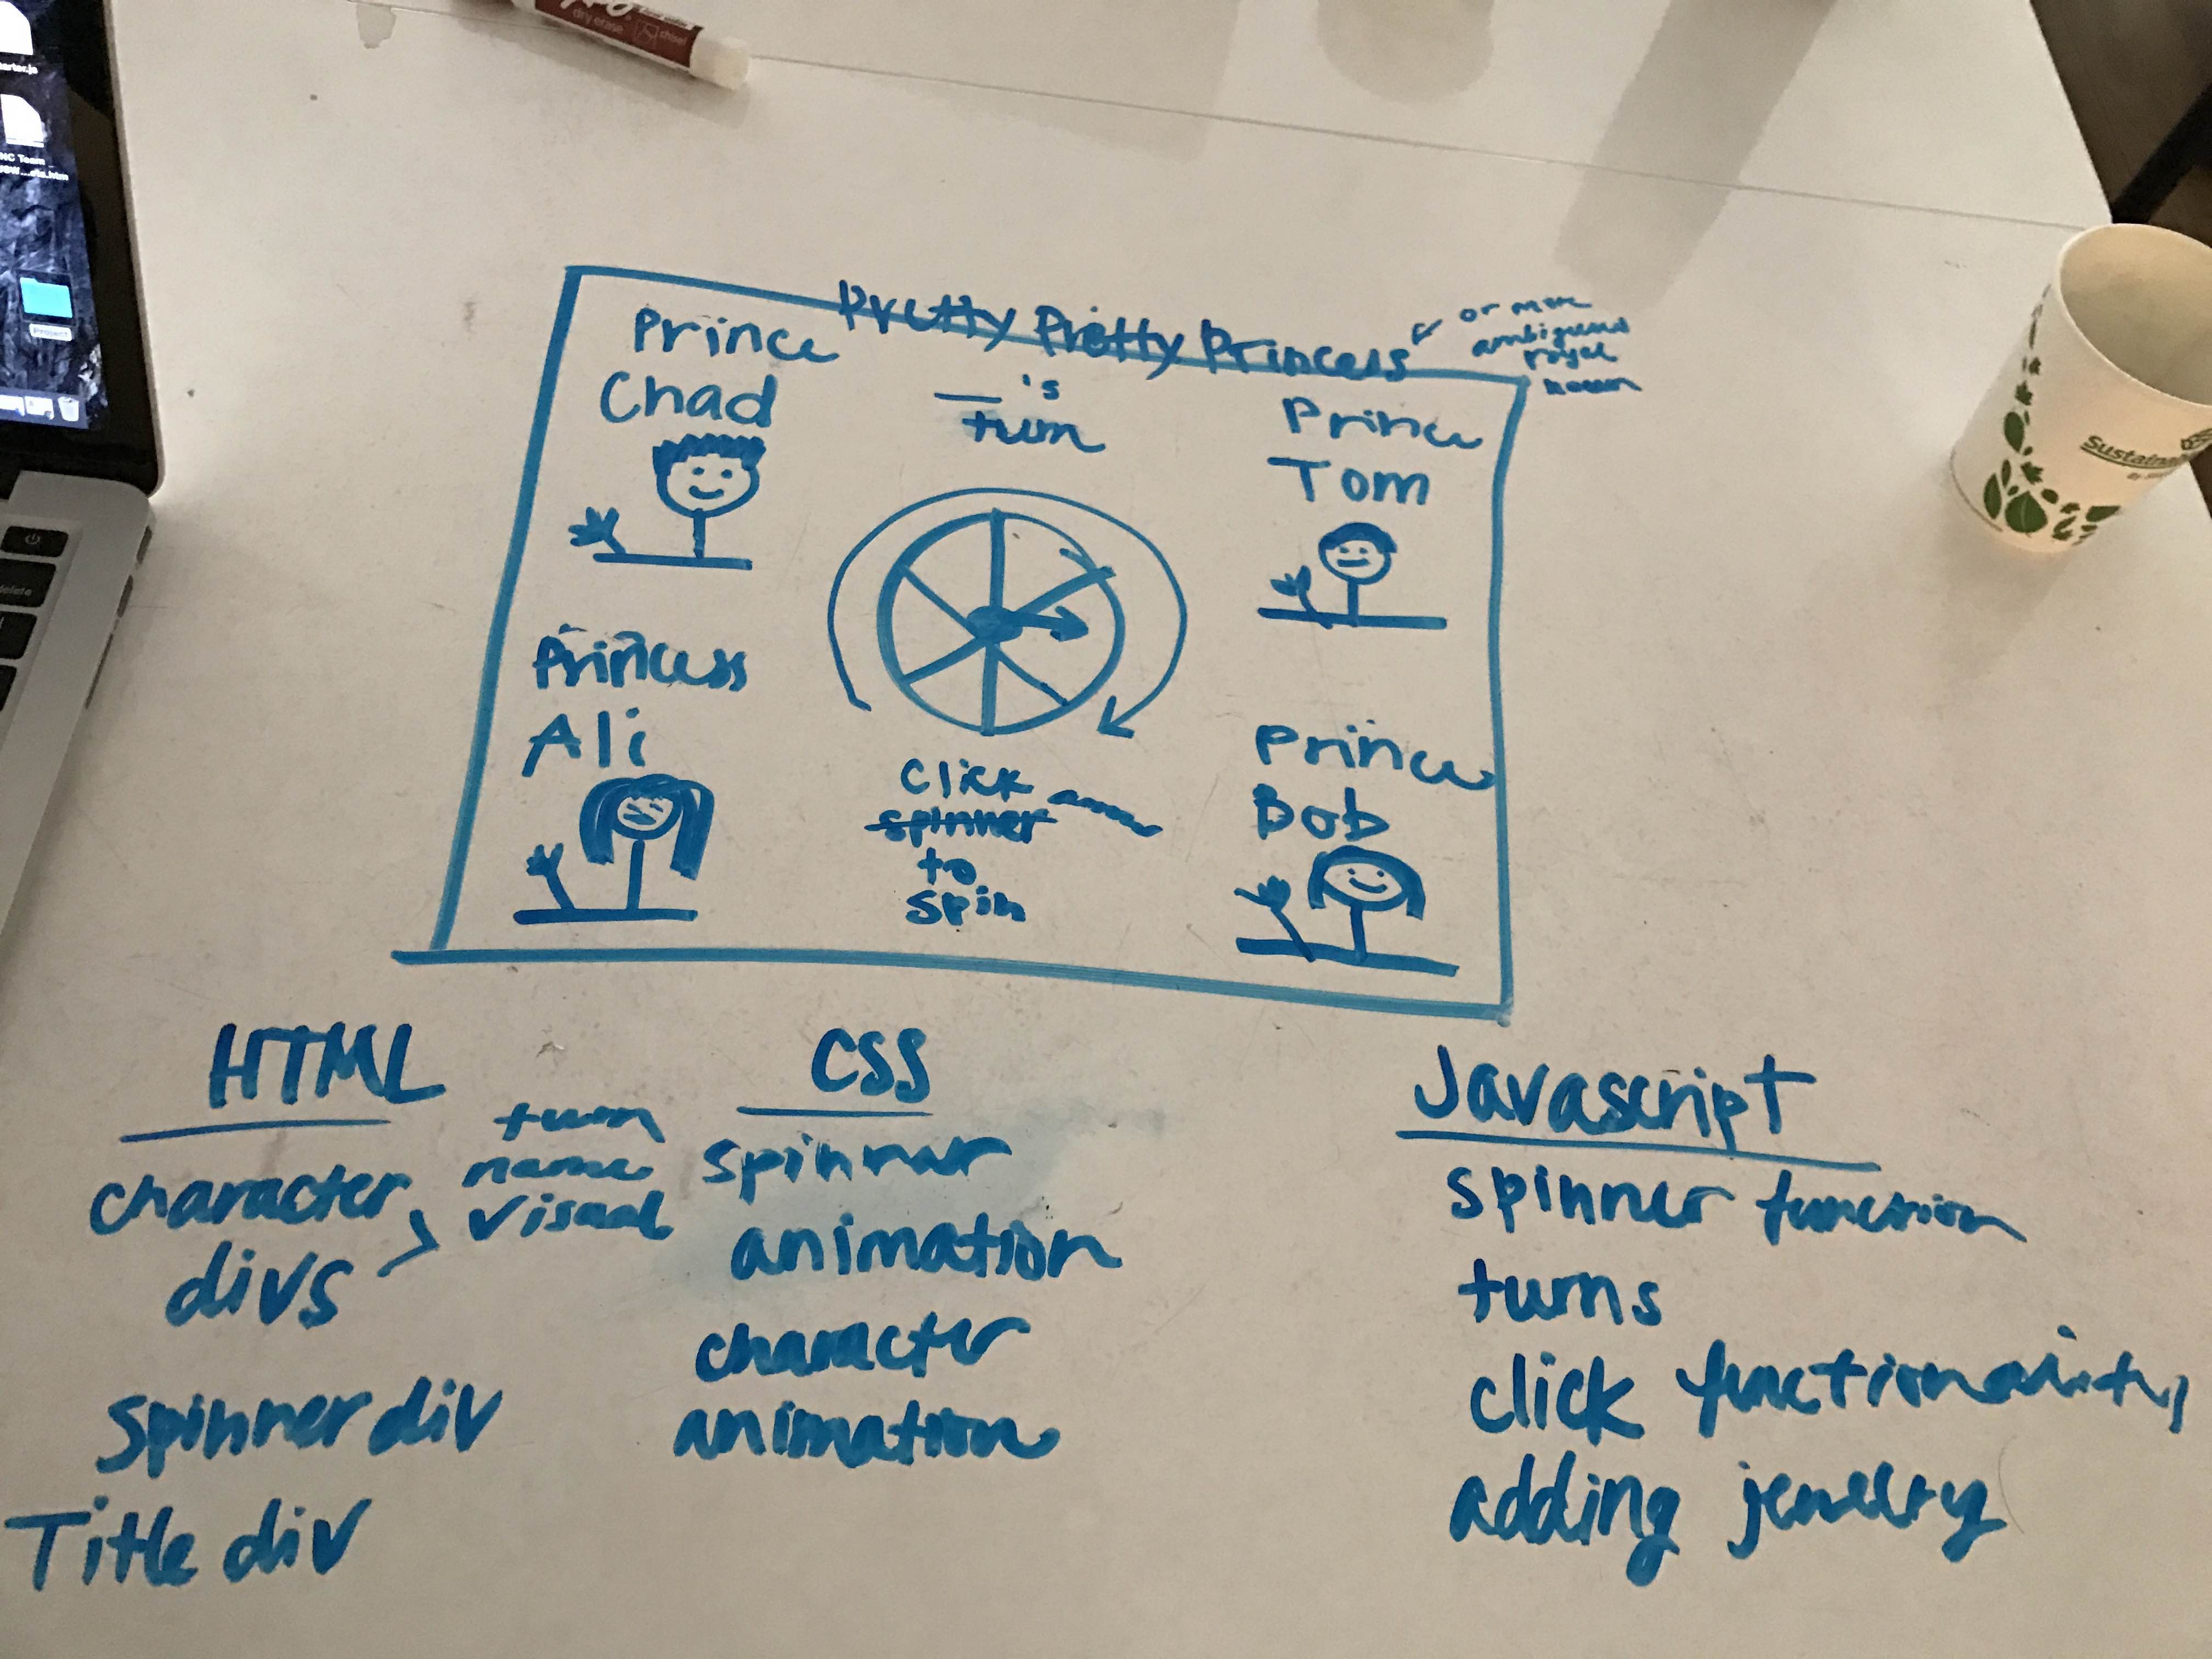 dry erase
chisel
arter.js
NC Team
Project
delete
Sustain
Pretty Pretty Princess
or more
ambiguous
royal
Prince
Chad
__'s
turn
Prince
Tom
Princess
Ali
click
spinner
to
spin
Prince
Bob
HTML
character
divs
turn
name
visual
spinner div
Title div
CSS
spinner
animation
character
animation
Javascript
spinner function
turns
click functionality
adding jewelry